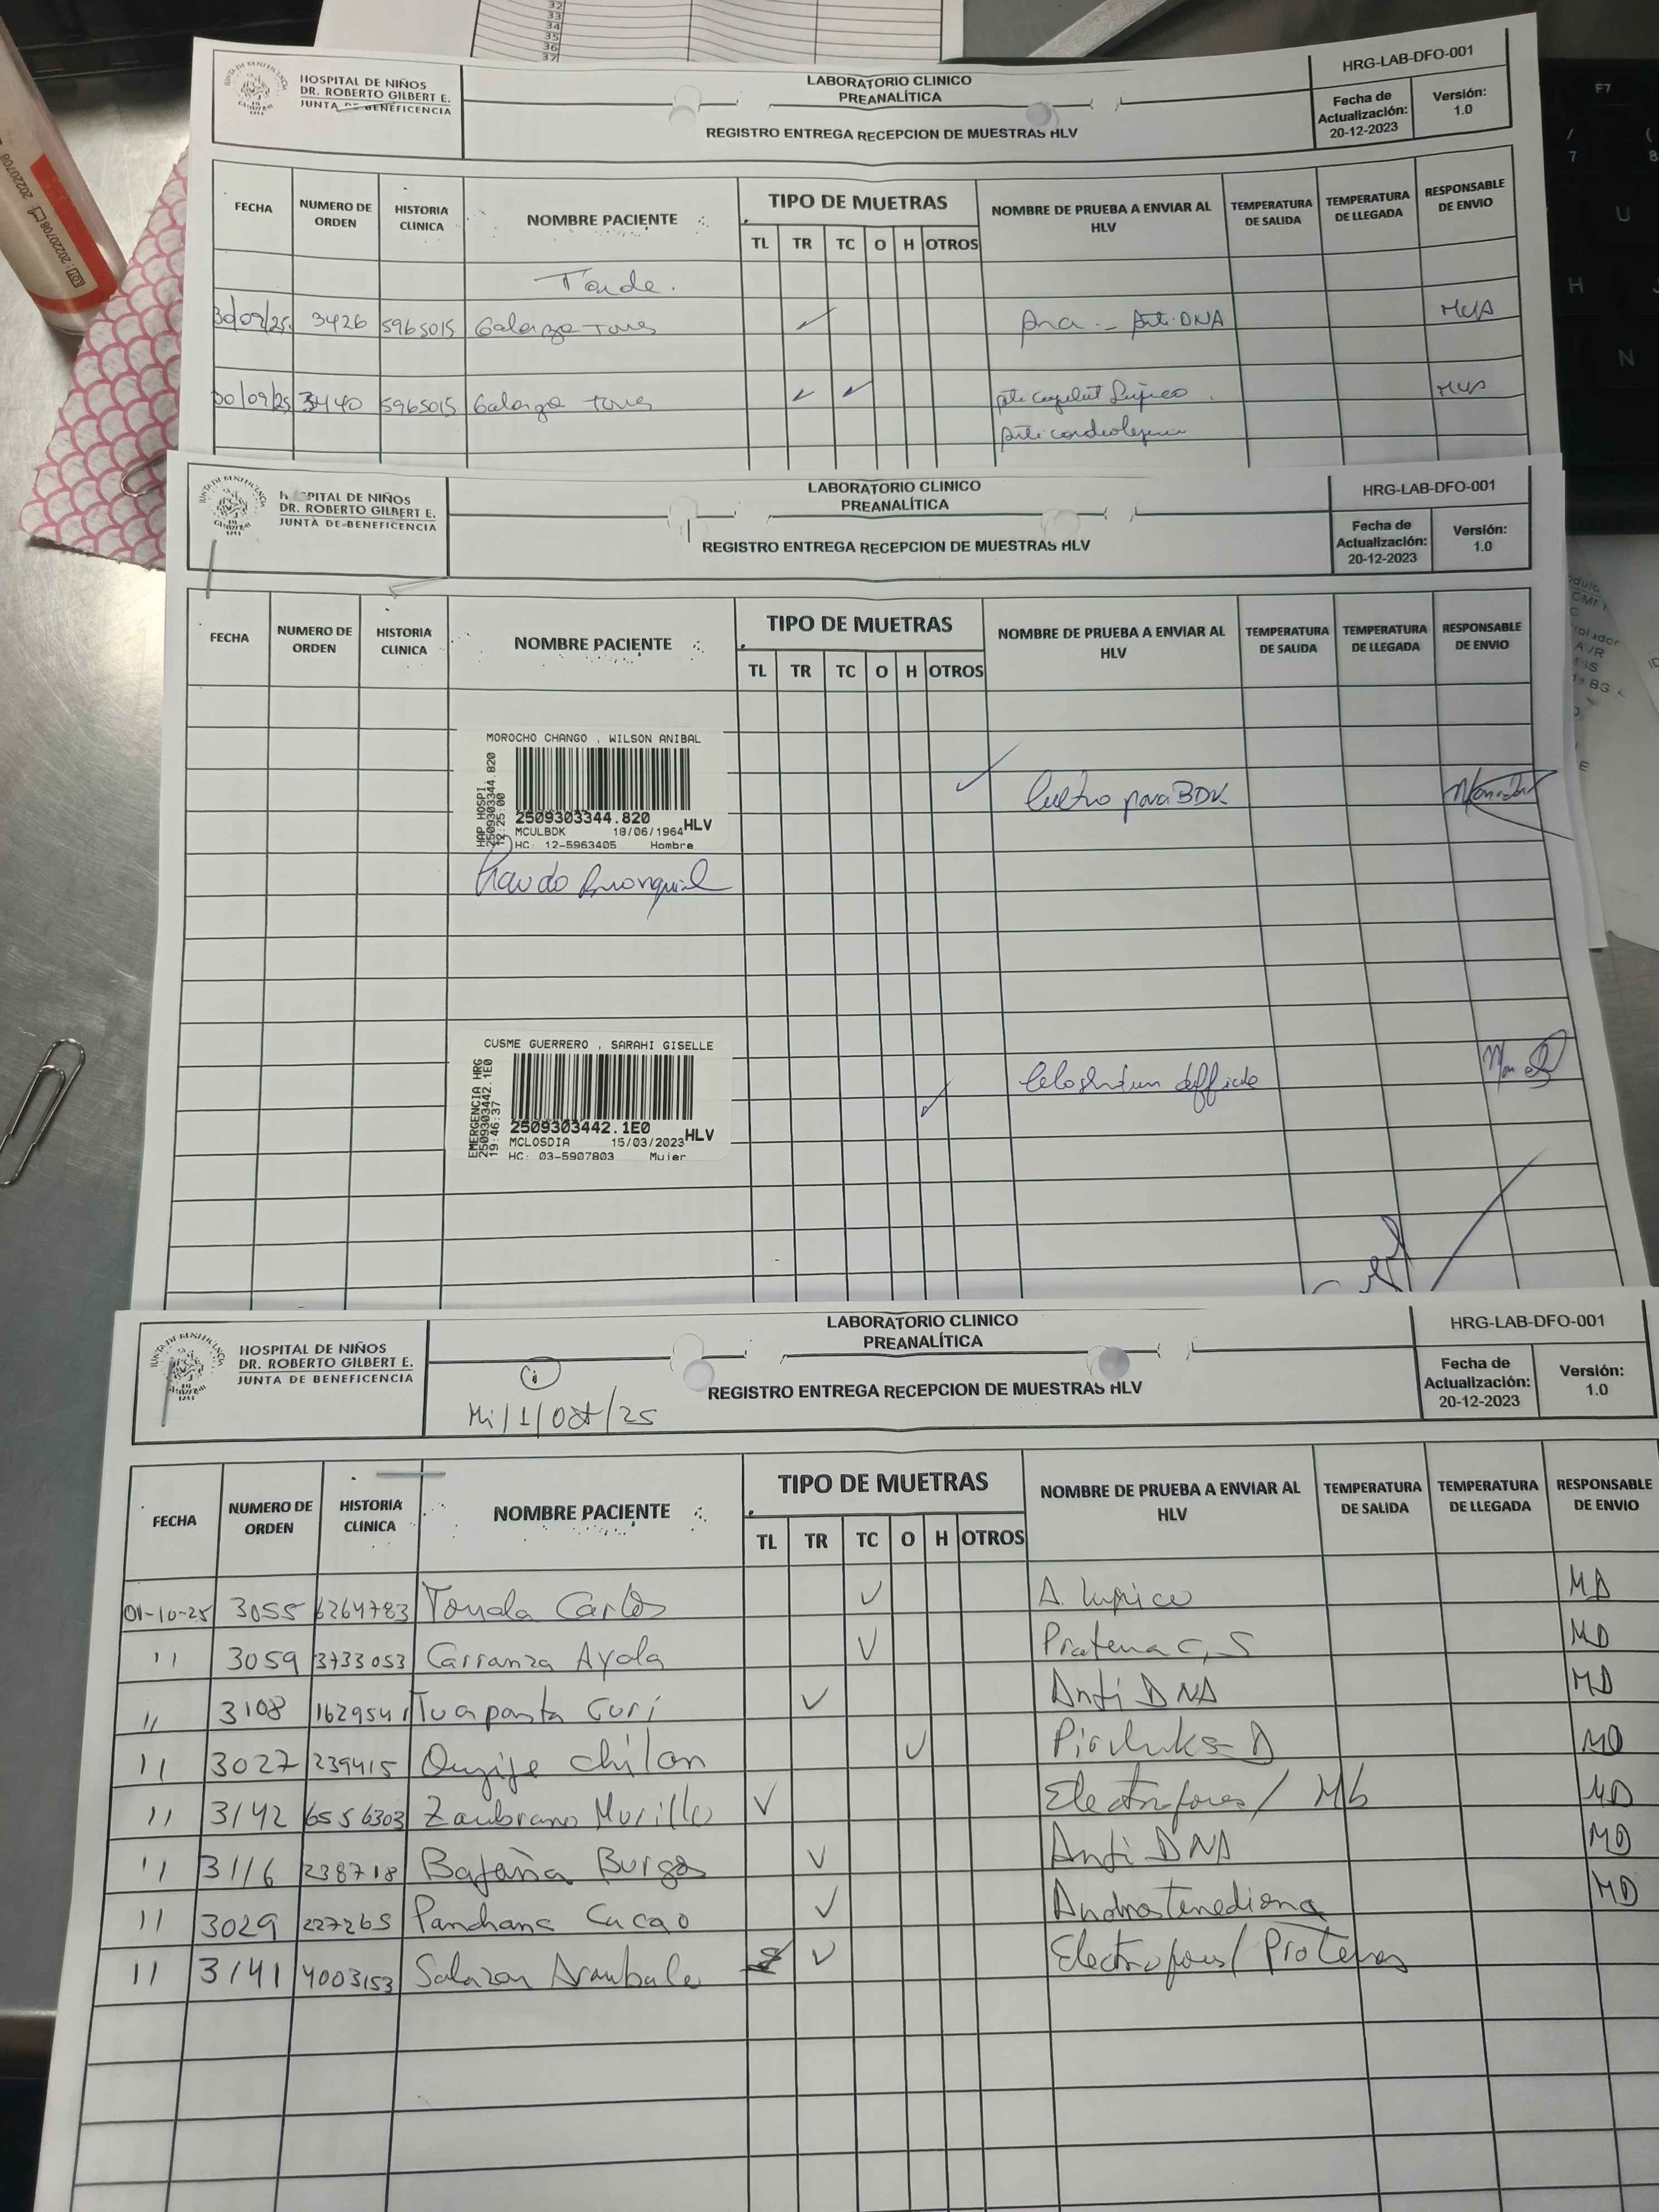 32
33
34
35
36
37
JUNTA DE BENEFICENCIA
HOSPITAL DE NIÑOS
DR. ROBERTO GILBERT E.
JUNTA DE BENEFICENCIA
LABORATORIO CLINICO
PREANALÍTICA
REGISTRO ENTREGA RECEPCION DE MUESTRAS HLV
HRG-LAB-DFO-001
Fecha de Actualización: 20-12-2023
Versión: 1.0
FECHA NUMERO DE ORDEN HISTORIA CLINICA NOMBRE PACIENTE TIPO DE MUETRAS NOMBRE DE PRUEBA A ENVIAR AL HLV TEMPERATURA DE SALIDA TEMPERATURA DE LLEGADA RESPONSABLE DE ENVIO
TL TR TC O H OTROS
Tarde.
30/09/25 3426 5965015 Galarza Torres ✓ Ana - Anti-DNA
30/09/25 3440 5965015 Galarza Torres ✓ ✓
HOSPITAL DE NIÑOS
DR. ROBERTO GILBERT E.
JUNTA DE BENEFICENCIA
LABORATORIO CLINICO
PREANALÍTICA
REGISTRO ENTREGA RECEPCION DE MUESTRAS HLV
HRG-LAB-DFO-001
Fecha de Actualización: 20-12-2023
Versión: 1.0
FECHA NUMERO DE ORDEN HISTORIA CLINICA NOMBRE PACIENTE TIPO DE MUETRAS NOMBRE DE PRUEBA A ENVIAR AL HLV TEMPERATURA DE SALIDA TEMPERATURA DE LLEGADA RESPONSABLE DE ENVIO
TL TR TC O H OTROS
MOROCHO CHANGO , WILSON ANIBAL
HAP HOSPI
2509303344.820
12:25:00
2509303344.820 HLV
MCULBDK 18/06/1964
HC: 12-5963405 Hombre
✓ para BDK
CUSME GUERRERO , SARAHI GISELLE
EMERGENCIA HRG
2509303442.1E0
19:46:37
2509303442.1E0 HLV
MCLOSDIA 15/03/2023
HC: 03-5907803 Mujer
✓
HOSPITAL DE NIÑOS
DR. ROBERTO GILBERT E.
JUNTA DE BENEFICENCIA
LABORATORIO CLINICO
PREANALÍTICA
REGISTRO ENTREGA RECEPCION DE MUESTRAS HLV
Mi/1/Oct/25
HRG-LAB-DFO-001
Fecha de Actualización: 20-12-2023
Versión: 1.0
FECHA NUMERO DE ORDEN HISTORIA CLINICA NOMBRE PACIENTE TIPO DE MUETRAS NOMBRE DE PRUEBA A ENVIAR AL HLV TEMPERATURA DE SALIDA TEMPERATURA DE LLEGADA RESPONSABLE DE ENVIO
TL TR TC O H OTROS
01-10-25 3055 6264783 Tomala Carlos ✓ A. lupico MD
11 3059 3733053 Carranza Ayala ✓ Proteina C, S MD
11 3108 Tuapanta Curi ✓ Anti DNA MD
11 3027 239415 Chilan ✓ MD
11 3142 6556303 Zambrano Murillo ✓ Electrofores / Hb MD
11 3116 238718 Bajaña Burgos ✓ Anti DNA MD
11 3029 227265 Panchana Cacao ✓ Androstenediona MD
11 3141 4003153 Salazar ✓ Electrofores / Proteinas